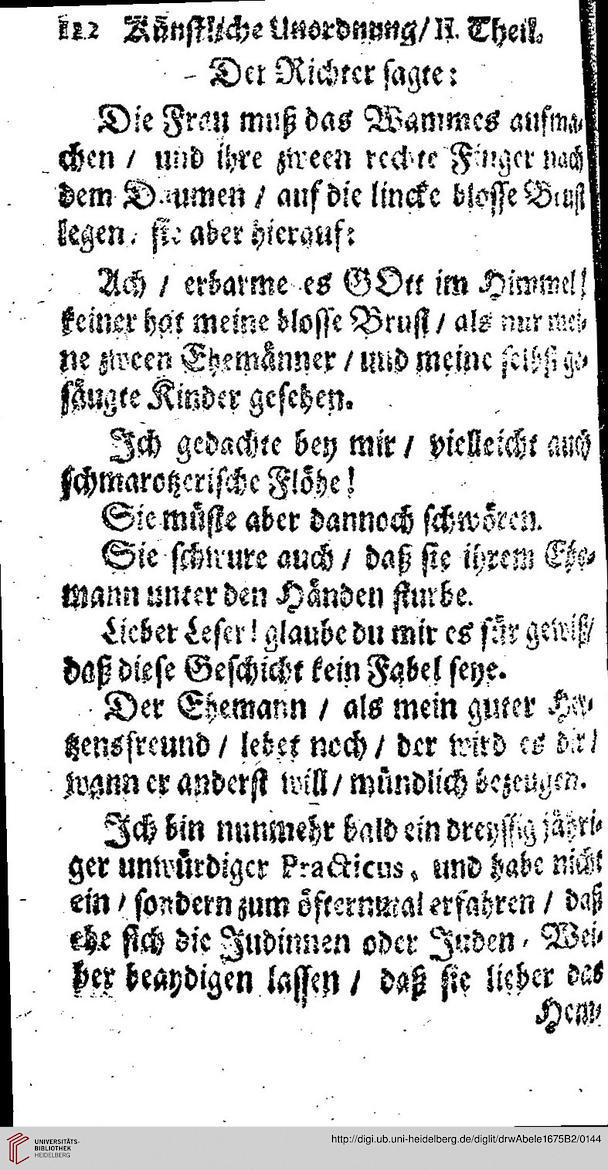 122 Künstliche Unordnung/ II. Theil.
Der Richter sagte:
Die Frau muß das Wammes aufma-
chen / und ihre zween rechte Finger nach
dem Daumen / auf die lincke blosse Brust
legen. sie aber hierauf:
Ach / erbarme es GOtt im Himmel!
keiner hat meine blosse Brust / als nur mei-
ne zween Ehemänner / und meine selbst ge-
säugte Kinder gesehen.
Ich gedachte bey mir / vielleicht auch
schmarotzerische Flöhe!
Sie müste aber dannoch schwören.
Sie schwure auch / daß sie ihrem Ehe-
mann unter den Händen sturbe.
Lieber Leser! glaube du mir es für gewiß/
daß diese Geschicht kein Fabel seye.
Der Ehemann / als mein guter Her-
tzensfreund / lebet noch / der wird es dir /
wann er anderst will / mündlich bezeugen.
Ich bin nunmehr bald ein dreyssig jähri-
ger unwürdiger Practicus, und habe nicht
ein / sondern zum öfternmal erfahren / daß
ehe sich die Judinnen oder Juden-Wei-
ber beaydigen lassen / daß sie lieber das
Hem-
UNIVERSITÄTS-
BIBLIOTHEK
HEIDELBERG
http://digi.ub.uni-heidelberg.de/diglit/drwAbele1675B2/0144